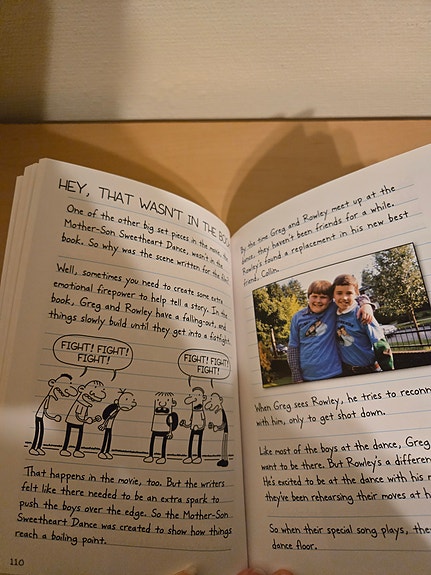 HEY, THAT WASN'T IN THE
One of the other big set pieces in the movie, the
Mother-Son Sweetheart Dance, wasn't in the
book. So why was the scene written for the
Well, sometimes you need to create some extra
emotional firepower to help tell a story. In the
book, Greg and Rowley have a falling-out, and
things slowly build until they get into a fistfight.
FIGHT! FIGHT!
FIGHT!
FIGHT! FIGHT!
FIGHT!
That happens in the movie, too. But the writers
felt like there needed to be an extra spark to
push the boys over the edge. So the Mother-Son
Sweetheart Dance was created to show how things
reach a boiling point.
110
By the time Greg and Rowley meet up at the
dance, they haven't been friends for a while.
Rowley's found a replacement in his new best
friend, Collin.
When Greg sees Rowley, he tries to
with him, only to get shot down.
Like most of the boys at the dance, Greg
want to be there. But Rowley's a
He's excited to be at the dance with his
they've been rehearsing their moves at
So when their special song plays,
dance floor.